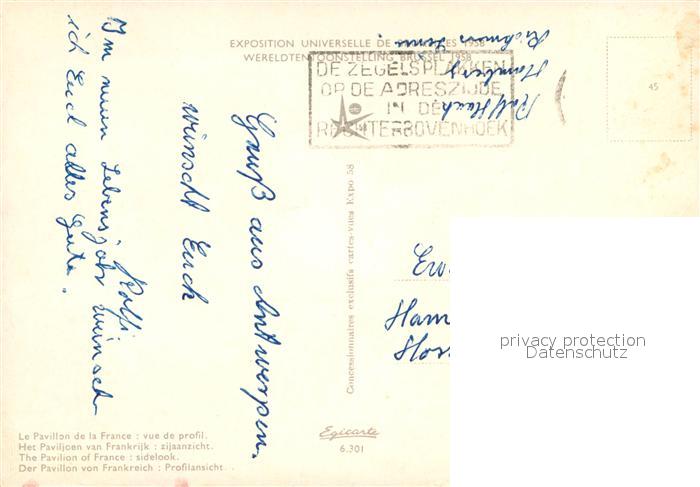 EXPOSITION UNIVERSELLE DE BRUXELLES 1958
WERELDTENTOONSTELLING BRUSSEL 1958
DE ZEGELS PLAKKEN
OP DE ADRESZIJDE
IN DE
RECHTERBOVENHOEK
45
Gruß aus Antwerpen.
wünscht Euch
Rolf
Im neuen Lebensjahr wünsch
ich Euch alles Gute.
Rolf
Hamburg
Concessionnaires exclusifs cartes-vues Expo 58
Ham
Hor
privacy protection
Datenschutz
Le Pavillon de la France : vue de profil.
Het Paviljoen van Frankrijk : zijaanzicht.
The Pavilion of France : sidelook.
Der Pavillon von Frankreich : Profilansicht.
Egicarte
6.301